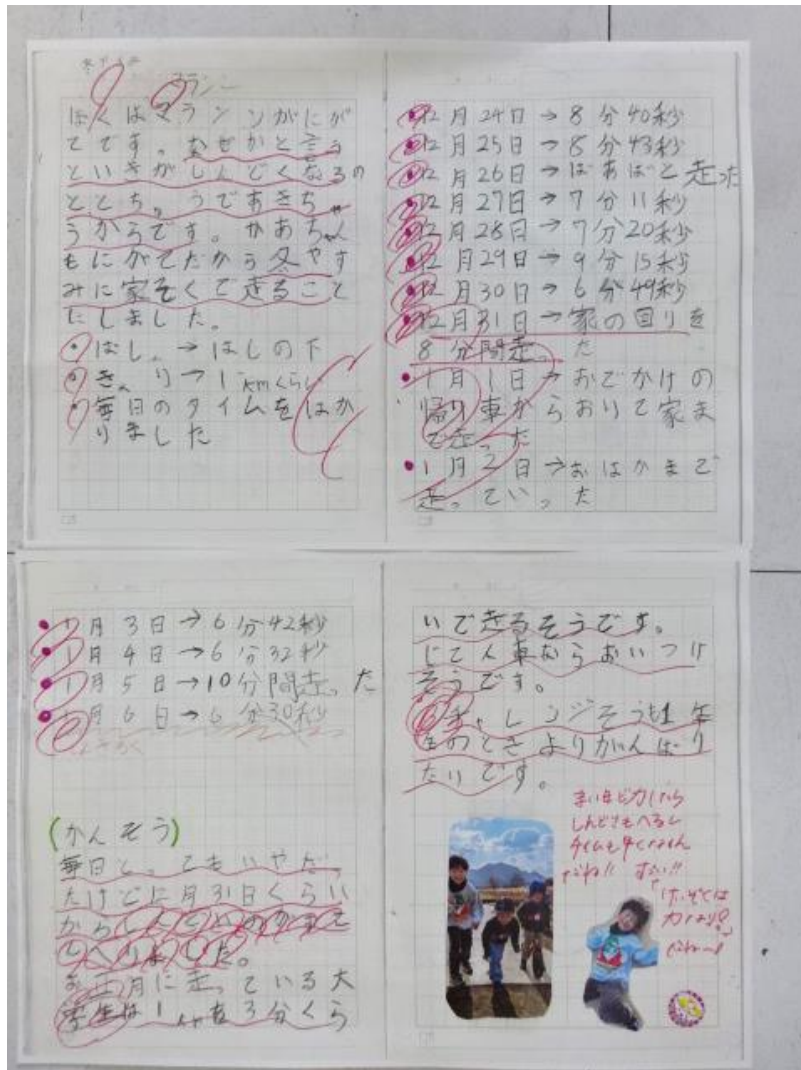 マラソン
ぼくはマラソンがにが
てです。なぜかと言う
といきがしんどくなるの
ととち。うであきちゃ
うからです。かあちゃん
もにがてだから冬やす
みに家ぞくで走ること
にしました。
・はし。→はしの下
・き。り→1kmくらい
・毎日のタイムをはか
りました
・12月24日→8分40秒
・12月25日→8分43秒
・12月26日→ばあばと走った
・12月27日→7分11秒
・12月28日→7分20秒
・12月29日→9分15秒
・12月30日→6分49秒
・12月31日→家の回りを
8分間走った
・1月1日→おでかけの
帰り車からおりて家ま
で走った
・1月2日→おはかまで
走っていった
・1月3日→6分42秒
・1月4日→6分32秒
・1月5日→10分間走った
・1月6日→6分30秒
(かんそう)
毎日とってもいやだっ
たけど12月31日くらい
からしんどいのがすこし
へりました。
お正月に走っている大
学生は1kmを3分くら
いで走るそうです。
じてん車ならおいつけ
そうです。
チャレンジそうも1年
生のときよりがんばり
たいです。
まい日どりょくしたら
しんどさもへるし
タイムも早くなるん
だね!! すごい!!
けいぞくは
力なり
だねー!